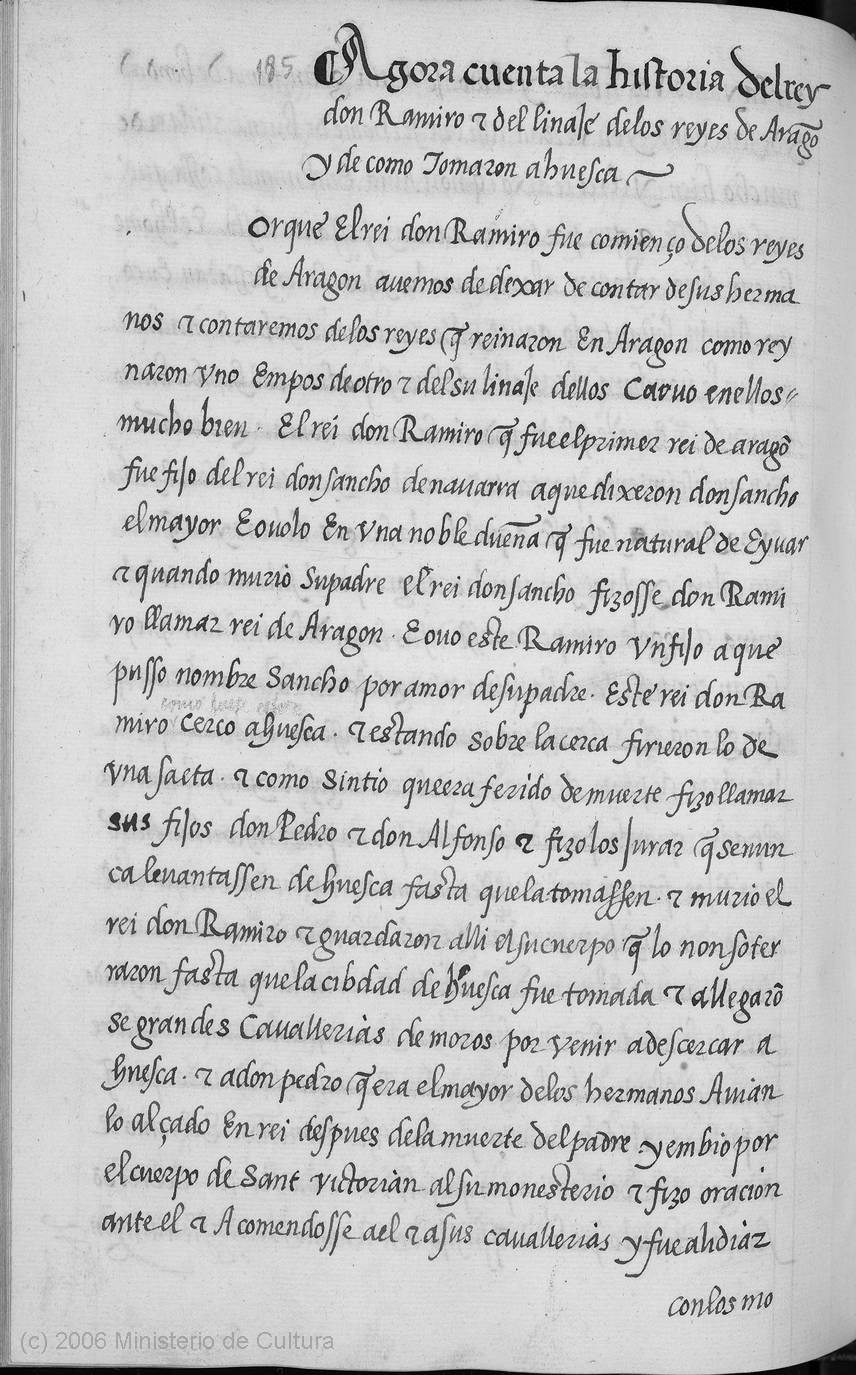 185 Agora cuenta la historia del rey
don Ramiro τ del linaje delos reyes de Aragō
y de como Tomaron ahuesca
orque El rei don Ramiro fue comienço delos reyes
de Aragon auemos de dexar de contar de sus herma
nos τ contaremos delos reyes q̄ reinaron En Aragon como rey
naron vno Empos de otro τ del su linaje dellos Ca ouo en ellos
mucho bien. El rei don Ramiro q̄ fue el primer rei de aragō
fue fijo del rei don sancho de nauarra aque dixeron don sancho
el mayor E ouolo En vna noble dueña q̄ fue natural de Eyuar
τ quando murio Su padre el rei don sancho fizosse don Rami
ro llamar rei de Aragon. E ouo este Ramiro vn fijo a que
pusso nombre Sancho por amor de su padre. Este rei don Ra
miro cerco ahuesca. τ estando sobre la cerca firieron lo de
vna saeta. τ como sintio que era ferido de muerte fizo llamar
sus fijos don Pedro τ don Alfonso τ fizo los jurar q̄ se nun
ca leuantassen de huesca fasta que la tomassen. τ murio el
rei don Ramiro τ guardaron alli el su cuerpo q̄ lo non soter
raron fasta que la cibdad de huesca fue tomada τ allegarō
se grandes Cauallerias de moros por venir a descercar a
huesca. τ a don pedro q̄ era el mayor delos hermanos Auian
lo alçado En rei despues dela muerte del padre y embio por
el cuerpo de Sant victorian al su monesterio τ fizo oracion
ante el τ Acomendosse a el τ a sus cauallerias y fue a lidiar
con los mo
(c) 2006 Ministerio de Cultura